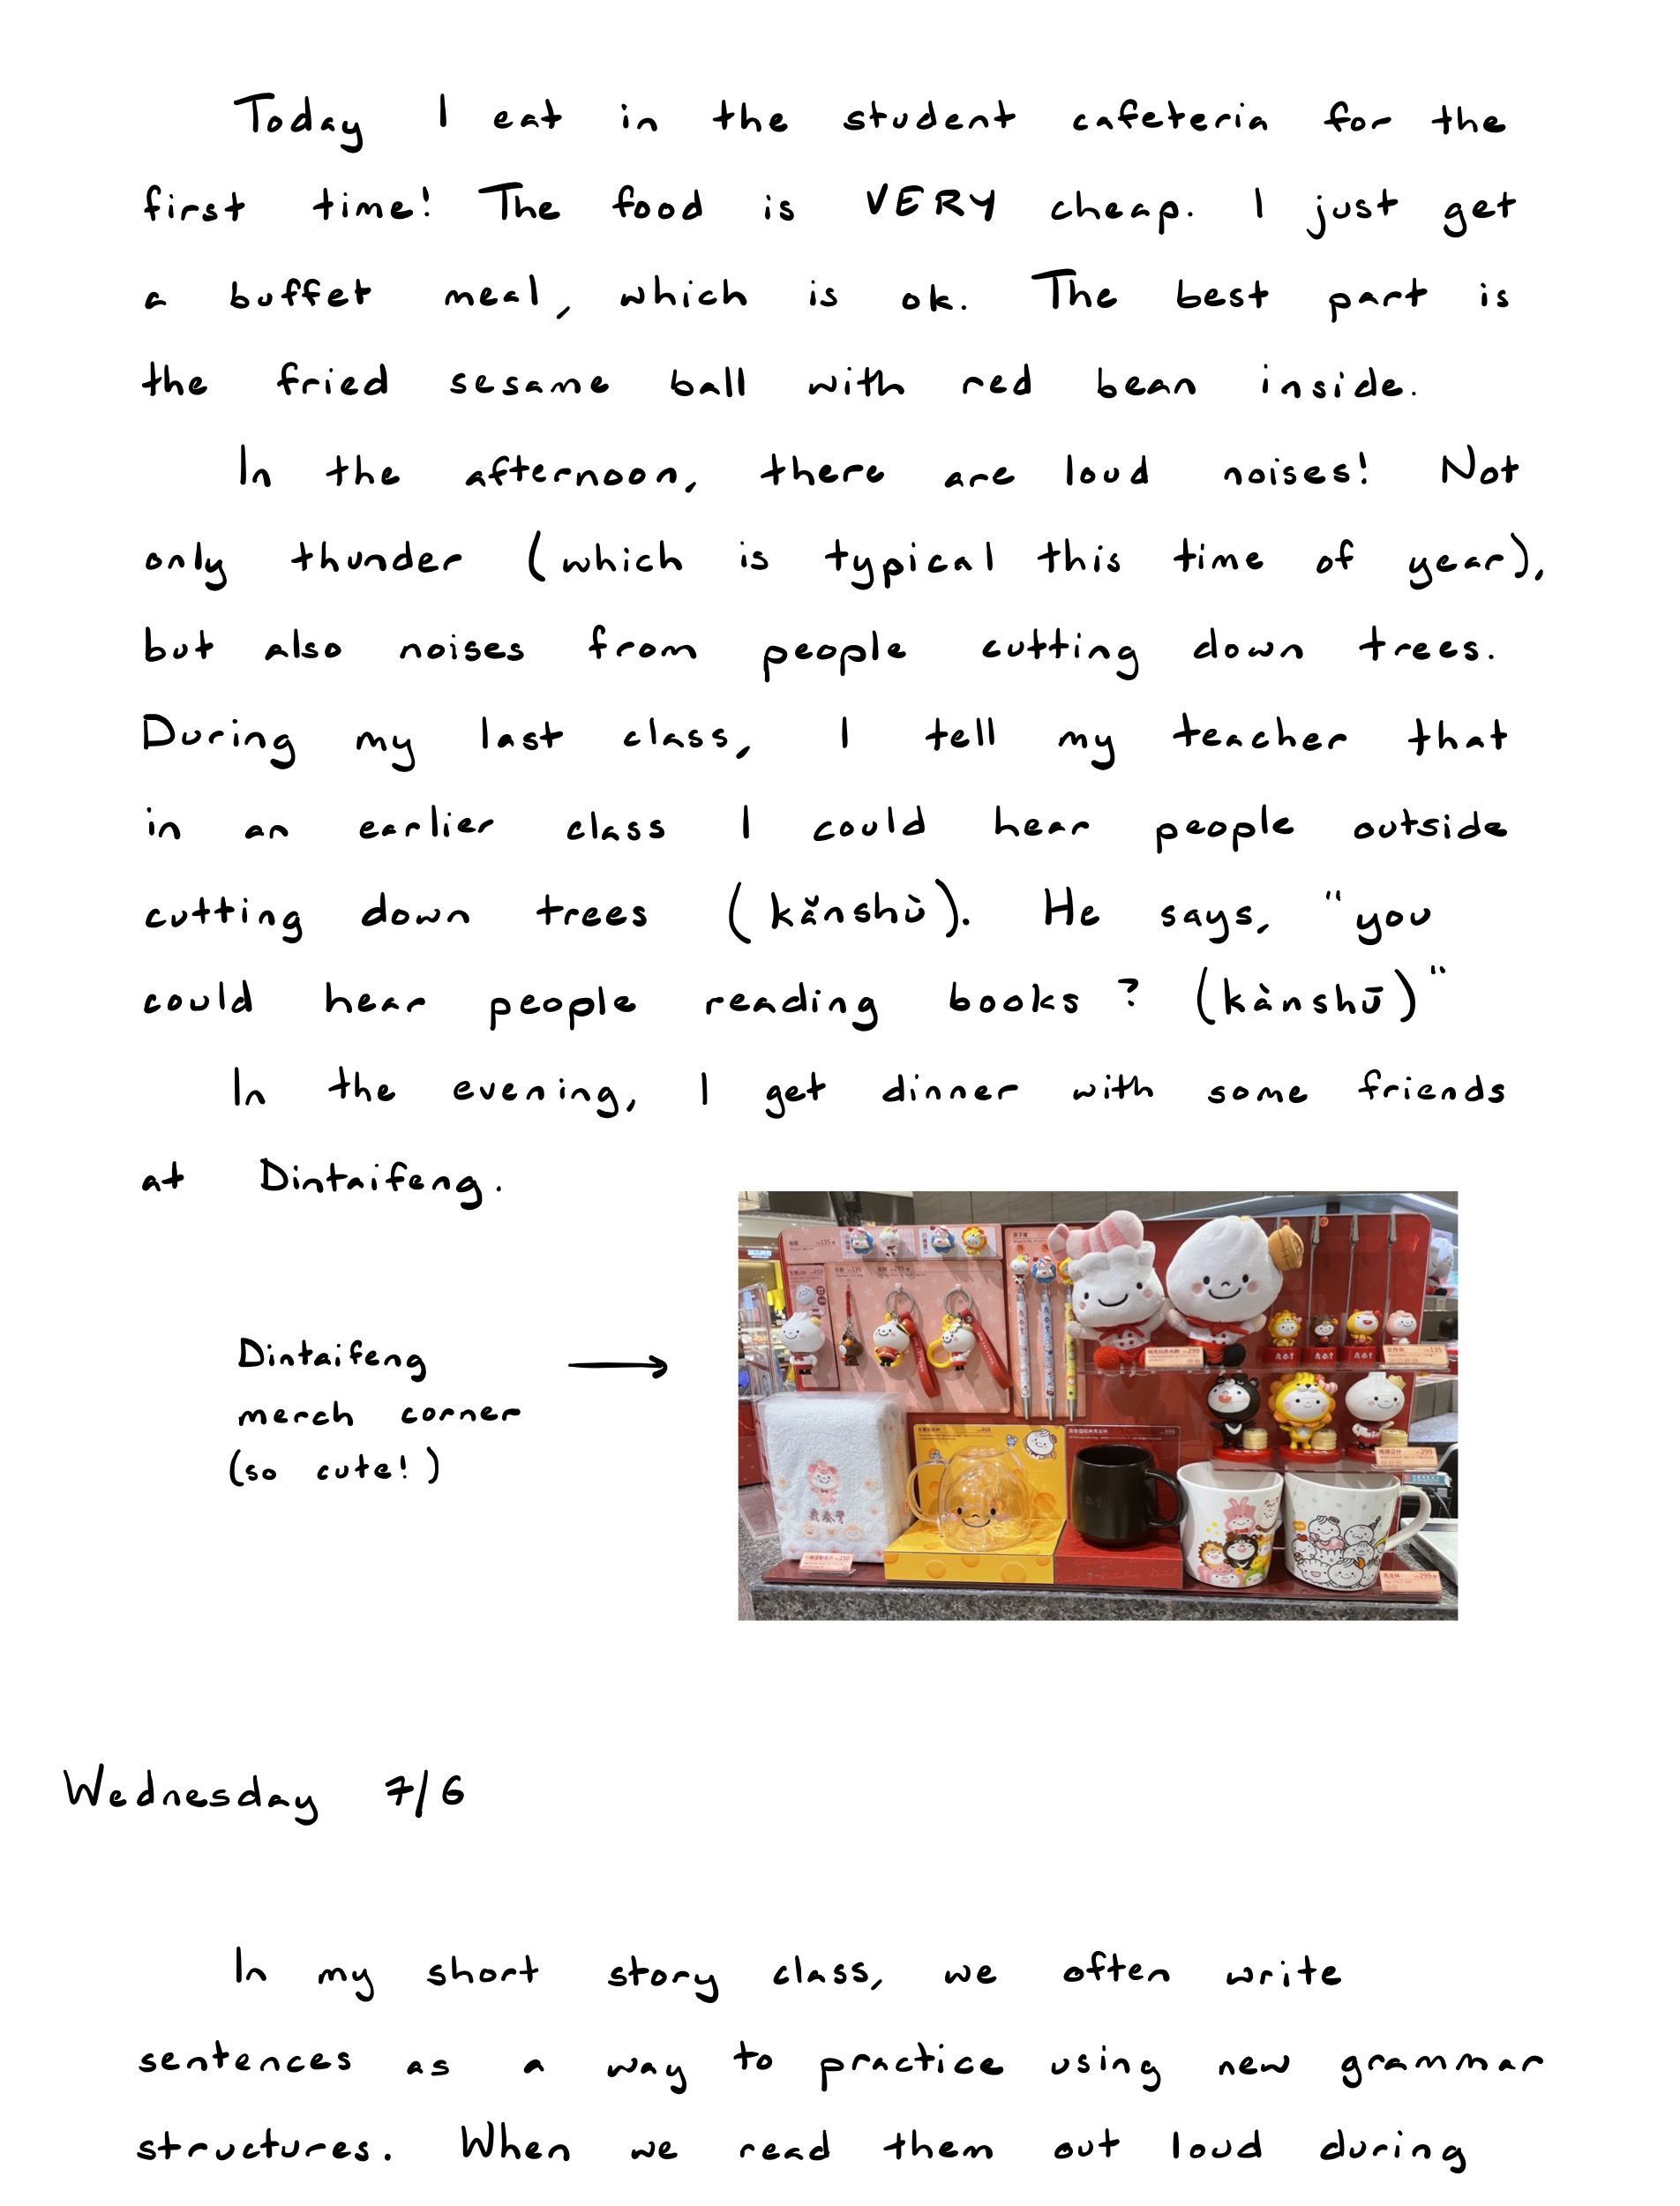 Today I eat in the student cafeteria for the
first time! The food is VERY cheap. I just get
a buffet meal, which is ok. The best part is
the fried sesame ball with red bean inside.
In the afternoon, there are loud noises! Not
only thunder (which is typical this time of year),
but also noises from people cutting down trees.
During my last class, I tell my teacher that
in an earlier class I could hear people outside
cutting down trees (kǎnshù). He says, "you
could hear people reading books? (kànshū)"
In the evening, I get dinner with some friends
at Dintaifeng.
Dintaifeng
merch corner
(so cute!)
Wednesday 7/6
In my short story class, we often write
sentences as a way to practice using new grammar
structures. When we read them out loud during